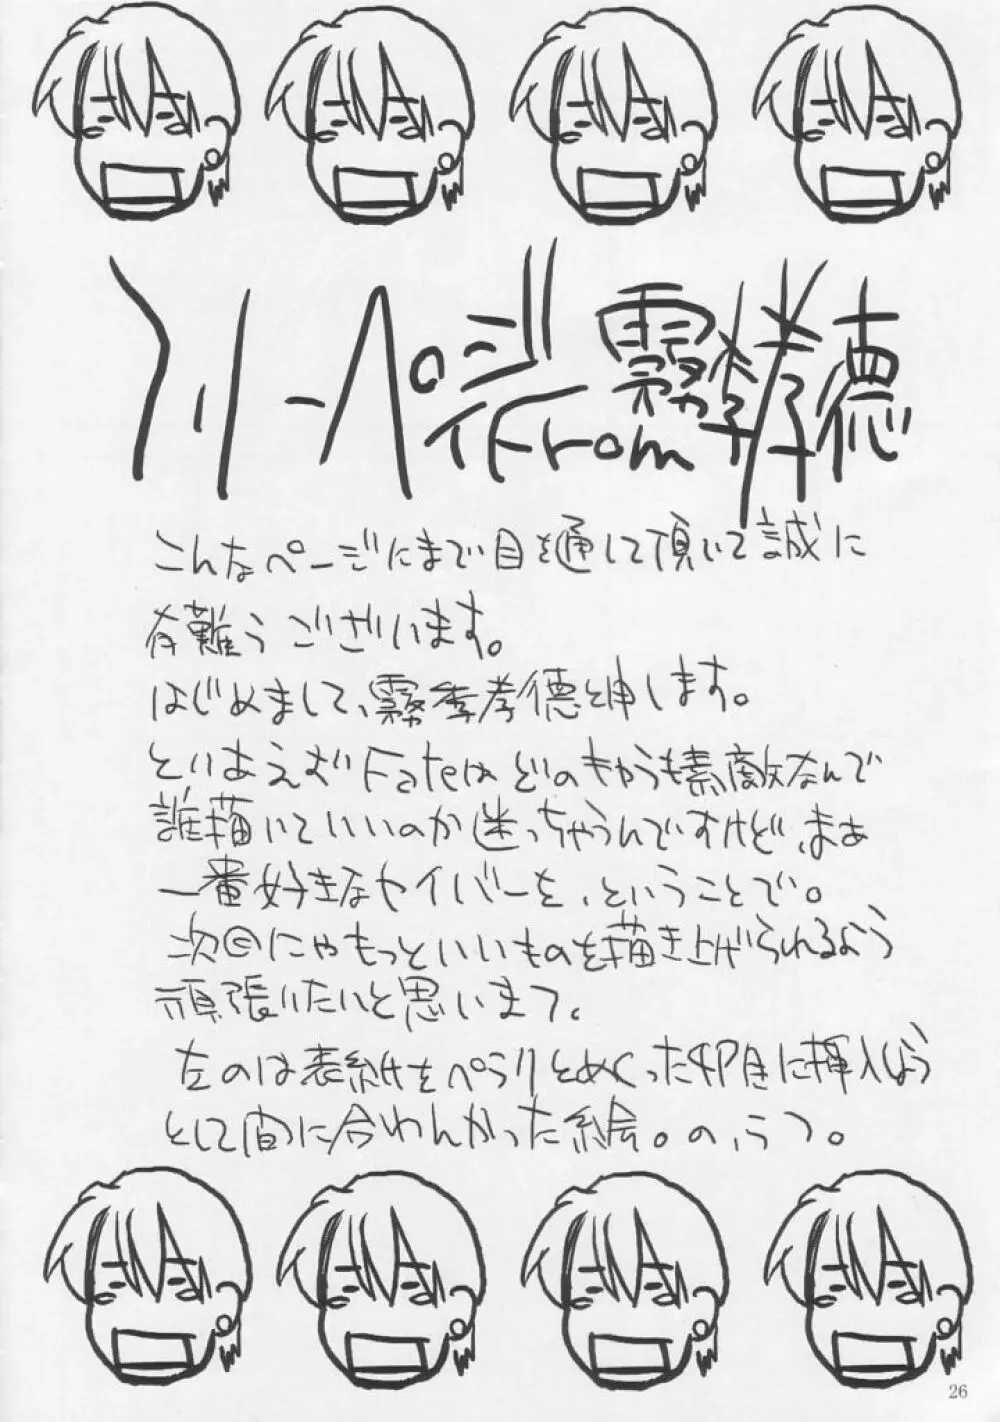 フリーペーヂ From 霧季孝徳
こんなページにまで目を通して頂いて誠に
有難うございます。
はじめまして、霧季孝徳と申します。
とりあえずFateはどのキャラも素敵なんで
誰描いていいのか迷っちゃうんですけど、まぁ
一番好きなセイバーを、ということで。
次回にゃもっといいものを描き上げられるよう
頑張りたいと思いまつ。
左のは表紙をペラリとめくった時に挿入しよう
として間に合わんかった絵。の、うつ。
26